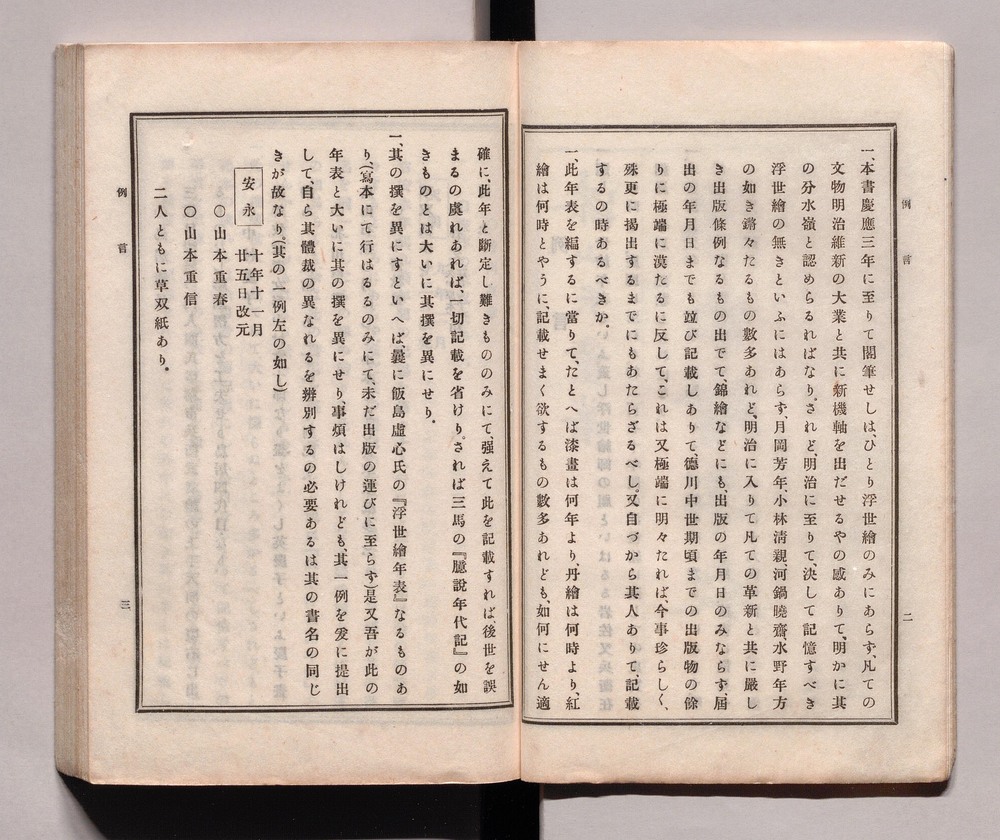 例言
二
一、本書慶應三年に至りて閣筆せしは、ひとり浮世繪のみにあらず、凡ての
文物明治維新の大業と共に新機軸を出だせるやの感ありて、明かに其
の分水嶺と認めらるればなり。されど、明治に至りて、決して記憶すべき
浮世繪の無きといふにはあらず、月岡芳年、小林淸親、河鍋曉齋、水野年方
の如き錚々たるもの數多あれど、明治に入りて凡ての革新と共に嚴し
き出版條例なるもの出でて、錦繪などにも、出版の年月日のみならず、屆
出の年月日までも竝び記載しありて、德川中世期頃までの出版物の餘
りに極端に漠たるに反して、これは又極端に明々たれば、今事珍らしく、
殊更に揭出するまでにもあたらざるべし。又自づから其人ありて、記載
するの時あるべきか。
一、此年表を編するに當りて、たとへば漆畫は何年より、丹繪は何時より、紅
繪は何時とやうに、記載せまく欲するもの數多あれども、如何にせん適
確に、此年と斷定し難きもののみにて、强えて此を記載すれば、後世を誤
まるの虞れあれば、一切記載を省けり。されば三馬の『臆說年代記』の如
きものとは大いに其撰を異にせり。
一、其の撰を異にすといへば、曩に飯島虛心氏の『浮世繪年表』なるものあ
り、(寫本にて行はるるのみにて、未だ出版の運びに至らず)是又吾が此の
年表と大いに其の撰を異にせり、事煩はしけれども、其一例を爰に提出
して、自ら其體裁の異なれるを辨別するの必要あるは其の書名の同じ
きが故なり。(其の一例左の如し)
安永 十年十一月
廿五日改元
〇山本重春
〇山本重信
二人ともに草双紙あり。
例言
三